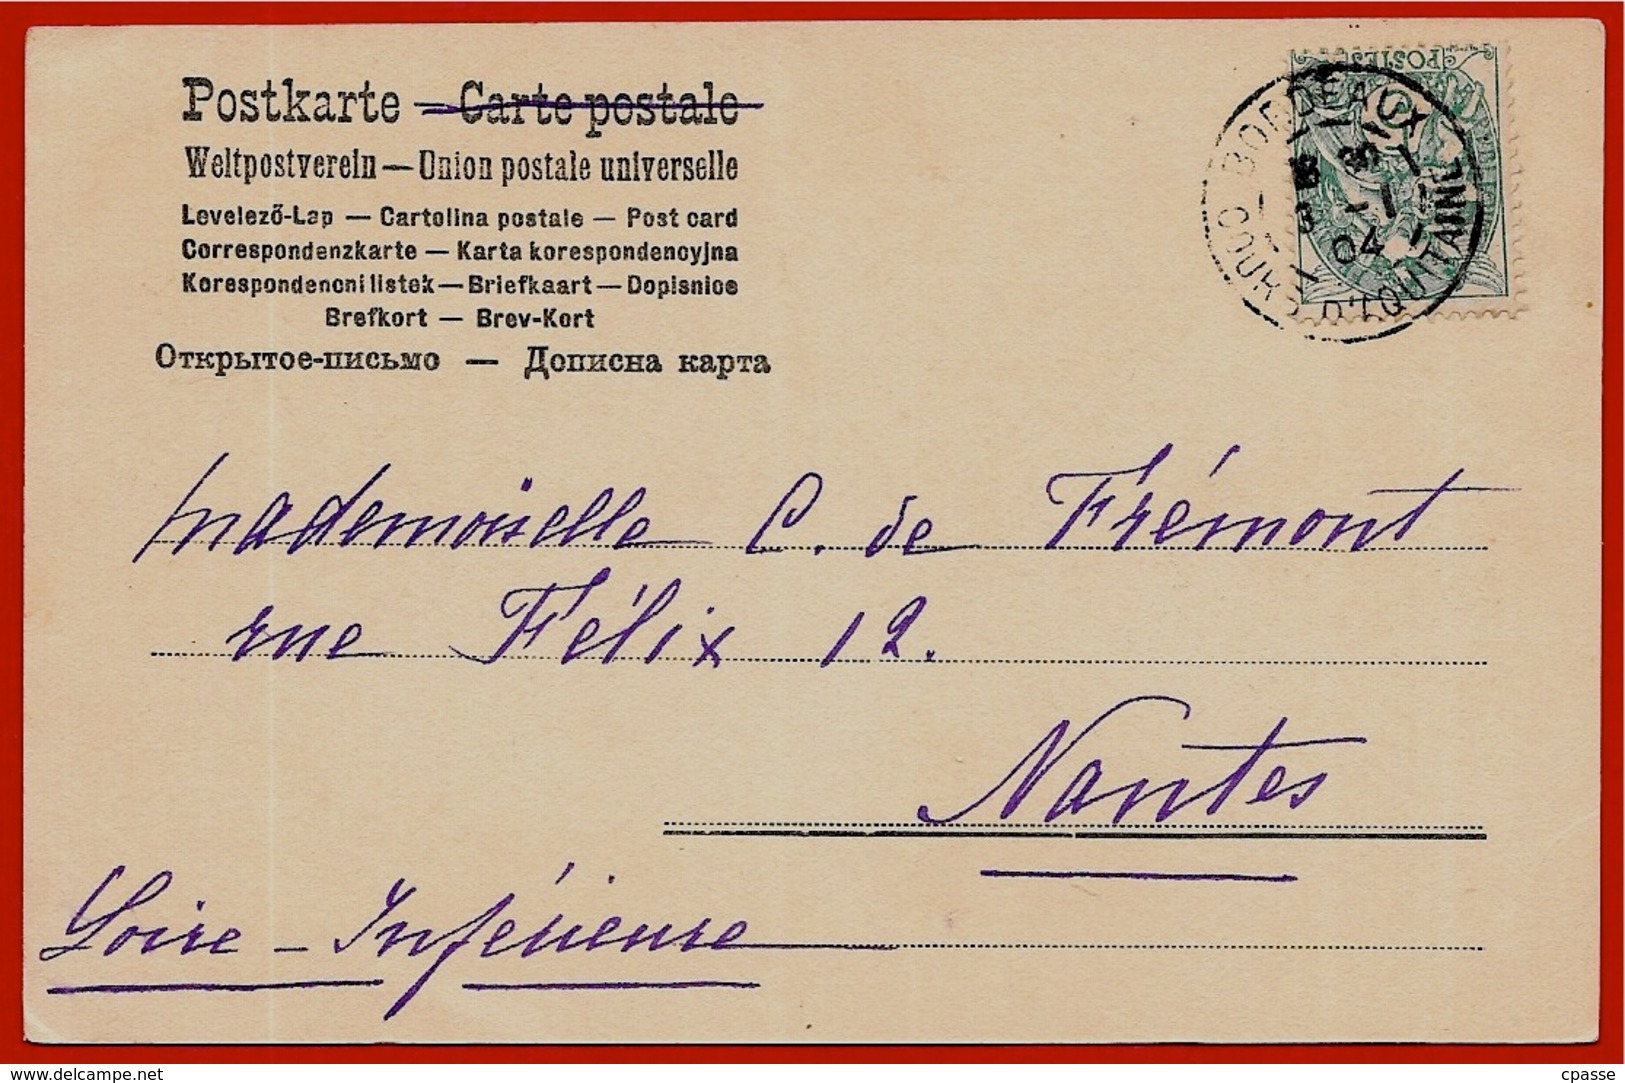 Postkarte – Carte postale
Weltpostverein — Union postale universelle
Levelező-Lap — Cartolina postale — Post card
Correspondenzkarte — Karta korespondencyjna
Korespondencni listek — Briefkaart — Dopisnice
Brefkort — Brev-Kort
Открытое-письмо — Дописна карта
POSTES
BORDEAUX
COURS D'AQUITAINE
-1
04
Mademoiselle C. de Frémont
rue Félix 12.
Nantes
Loire - Inférieure
www.delcampe.net
cpasse